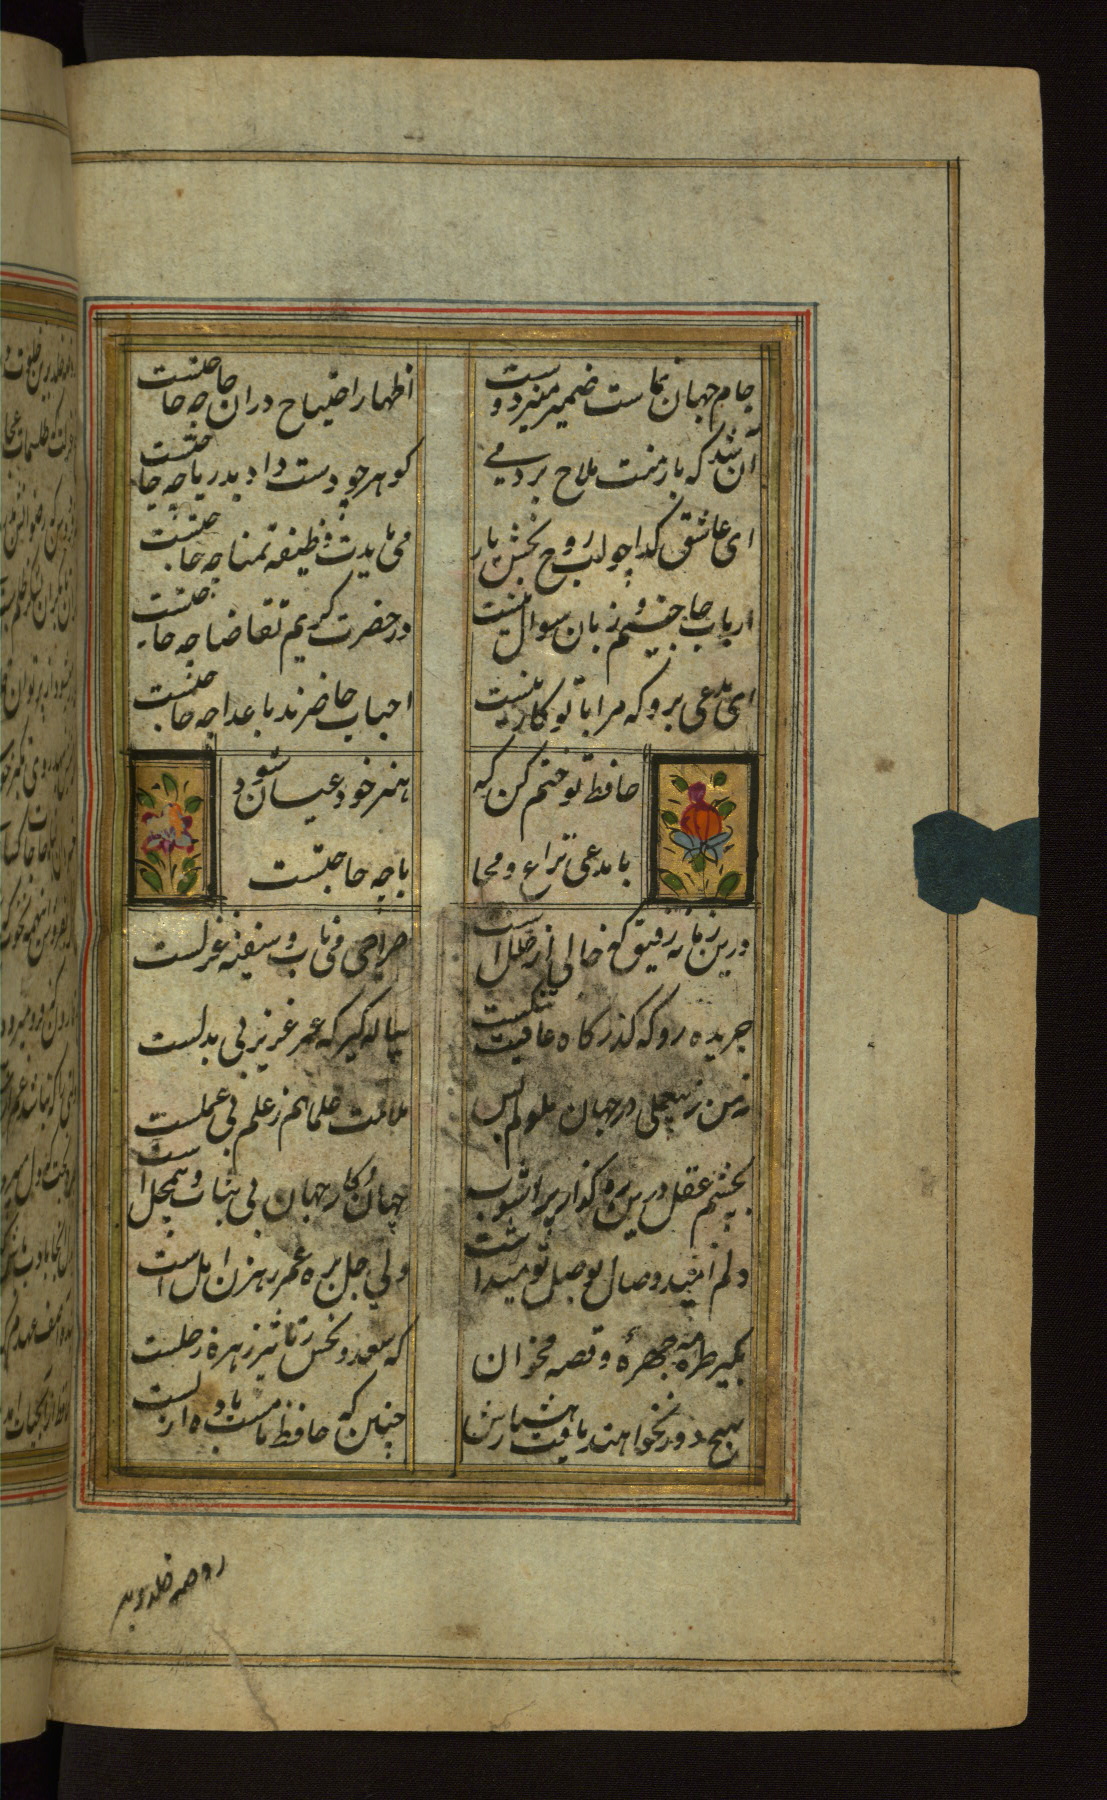 جام جهان نماست ضمیر منیر دوست
اظهار احتیاج دران جا چه حاجتست
آن شد که بار منت ملاح بردمی
کوهر چو دست داد بدریا چه حاجتست
ای عاشق کدا چو لب روح بخش یار
می بایدت وظیفه تمنا چه حاجتست
ارباب حاجتیم و زبان سوال نیست
در حضرت کریم تقاضا چه حاجتست
ای مدعی برو که مرا با تو کار نیست
احباب حاضرند باعدا چه حاجتست
حافظ تو ختم کن که
هنر خود عیان شود
با مدعی نزاع و محا
با چه حاجتست
درین زمانه رفیقی که خالی از خلل است
صراحی می ناب و سفینه غزلست
جریده رو که کذرکاه عافیت تنکست
پیاله کیر که عمر عزیز بی بدلست
نه من ز بیعملی در جهان ملولم بس
ملامت علما هم ز علم بی عملست
بچشم عقل درین ره کذار پر آشوب
جهان و کار جهان بی ثبات و بیمحل است
دلم امید وصال تو میداشت
ولی اجل بره عمر رهزن امل است
بکیر طره مه چهرهٔ و قصه مخوان
که سعد و نحس ز تاثیر زهره و زحلست
بهیچ دور نخواهند یافت هشیارش
چنین که حافظ ما مست باده ازلست
روضه خلد برین